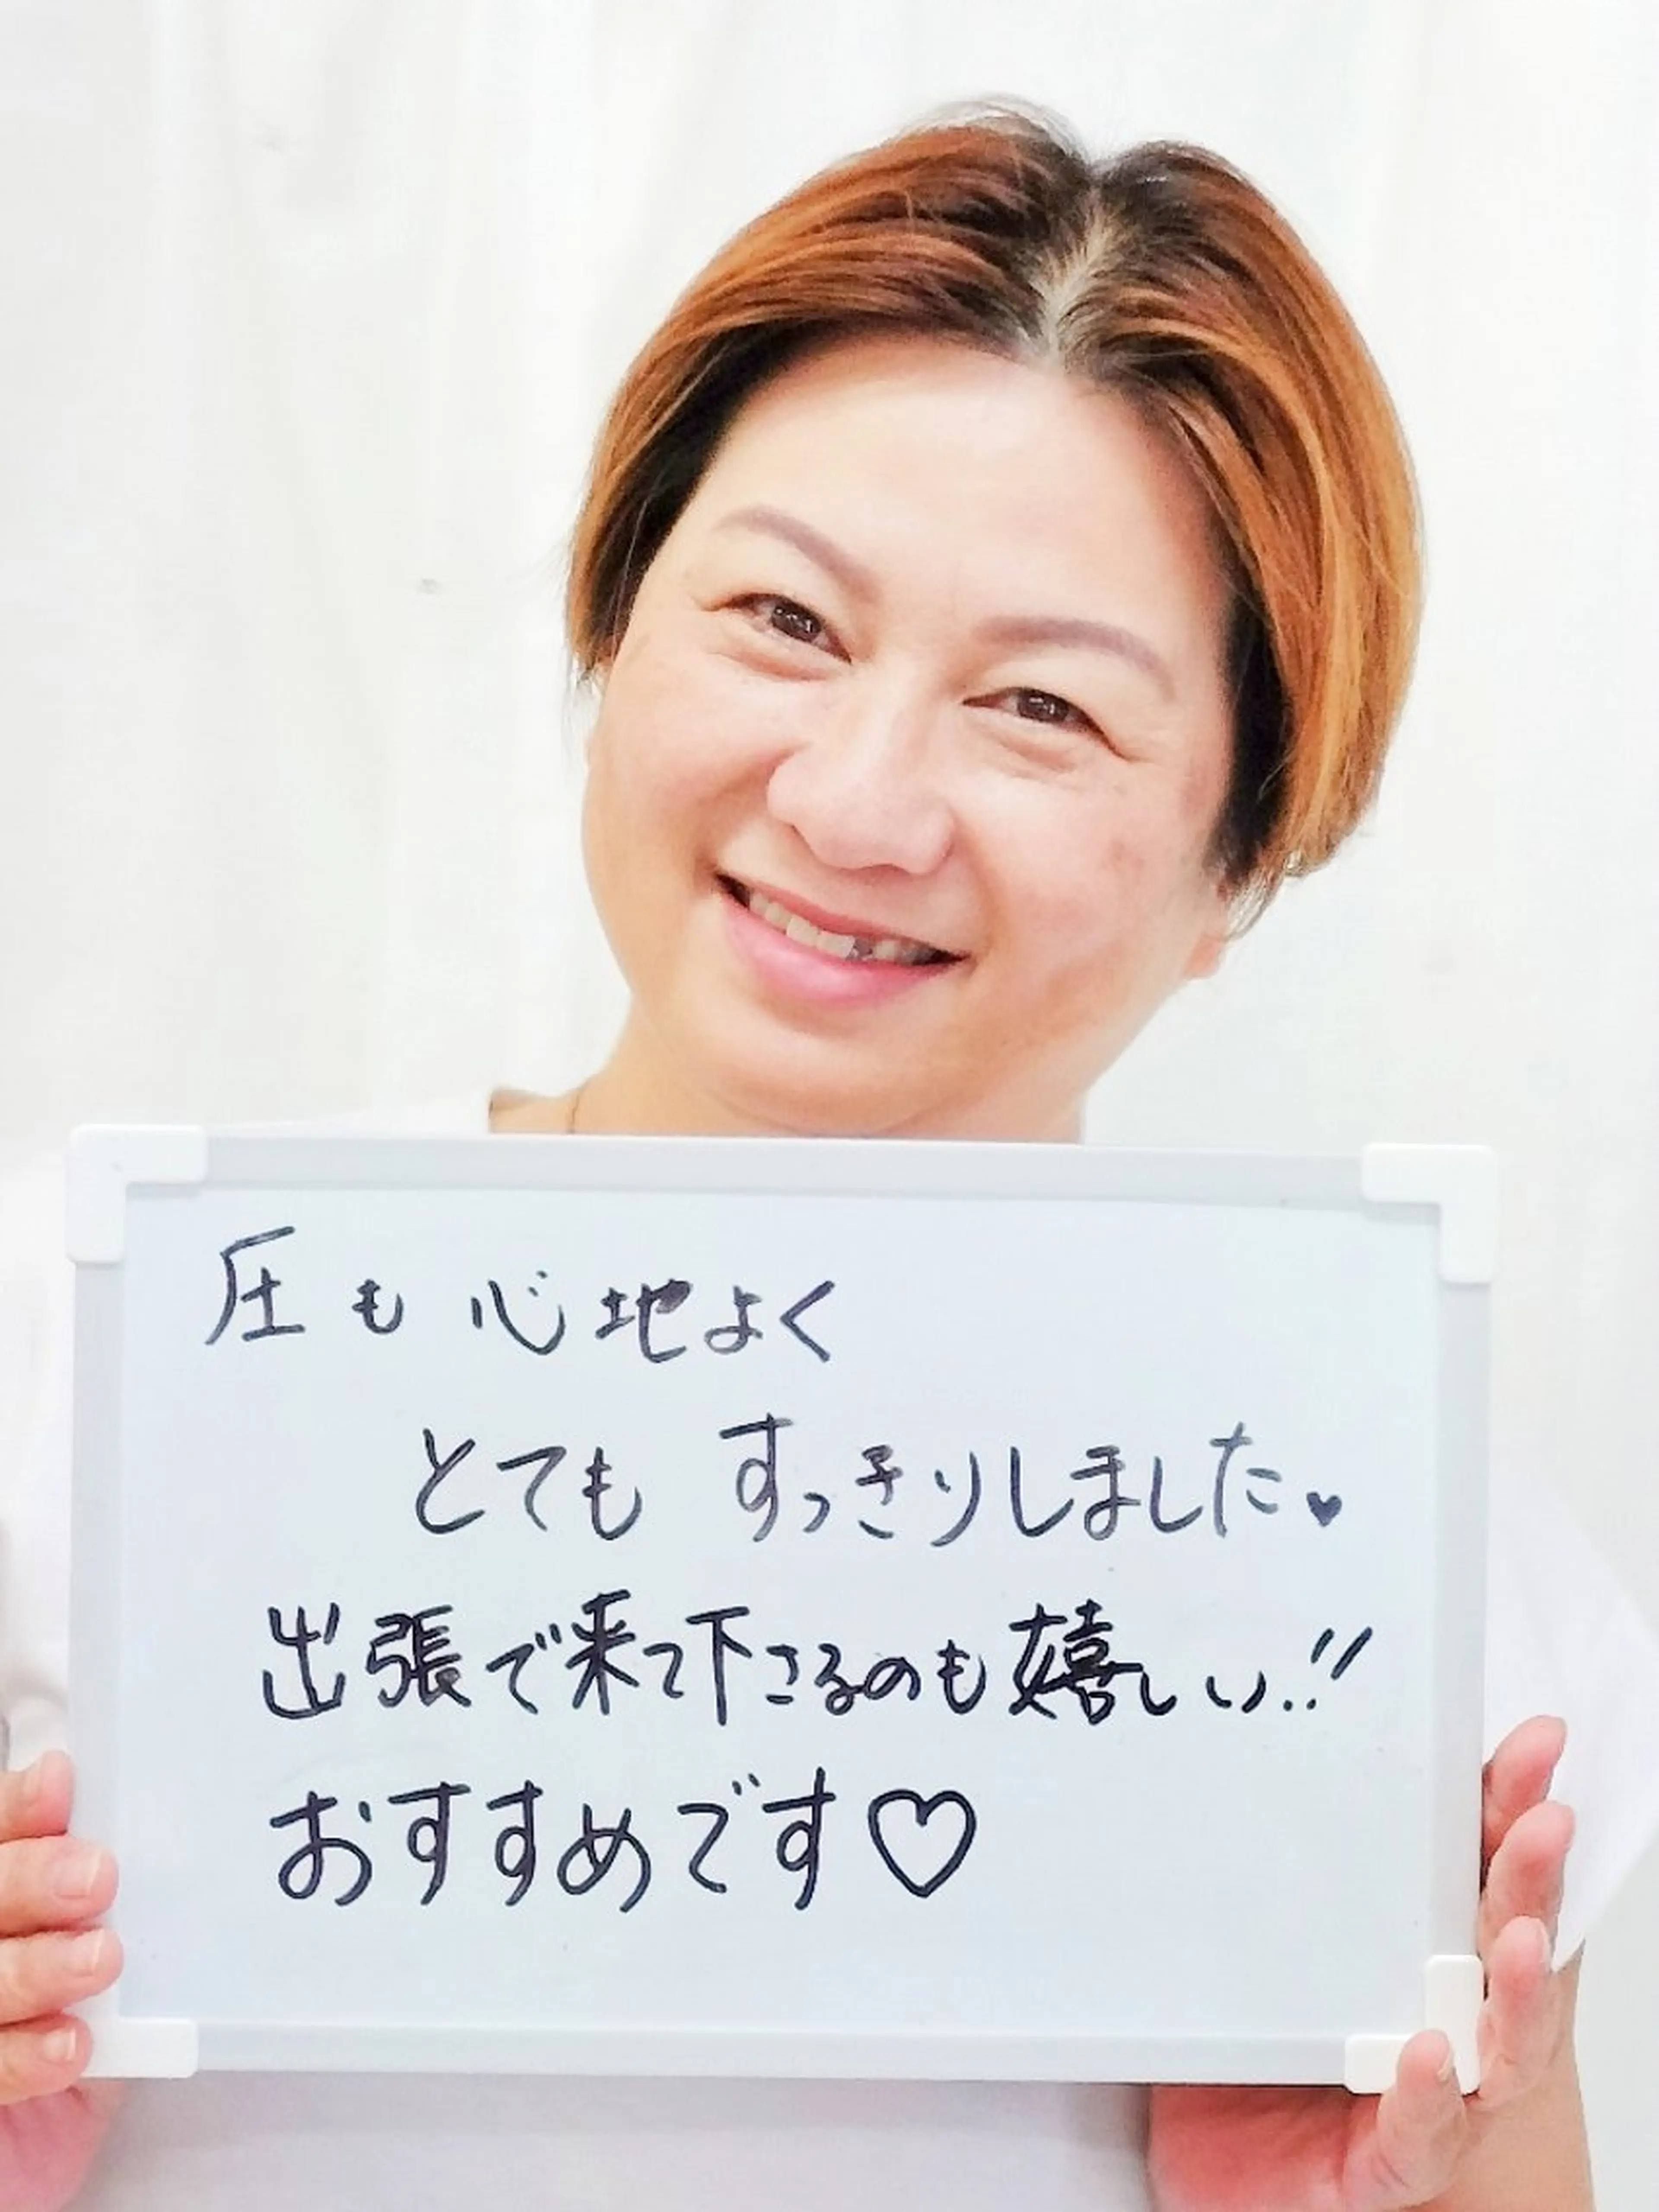 圧も心地よく
とても すっきりしました♥
出張で来て下さるのも嬉しい!!
おすすめです♡